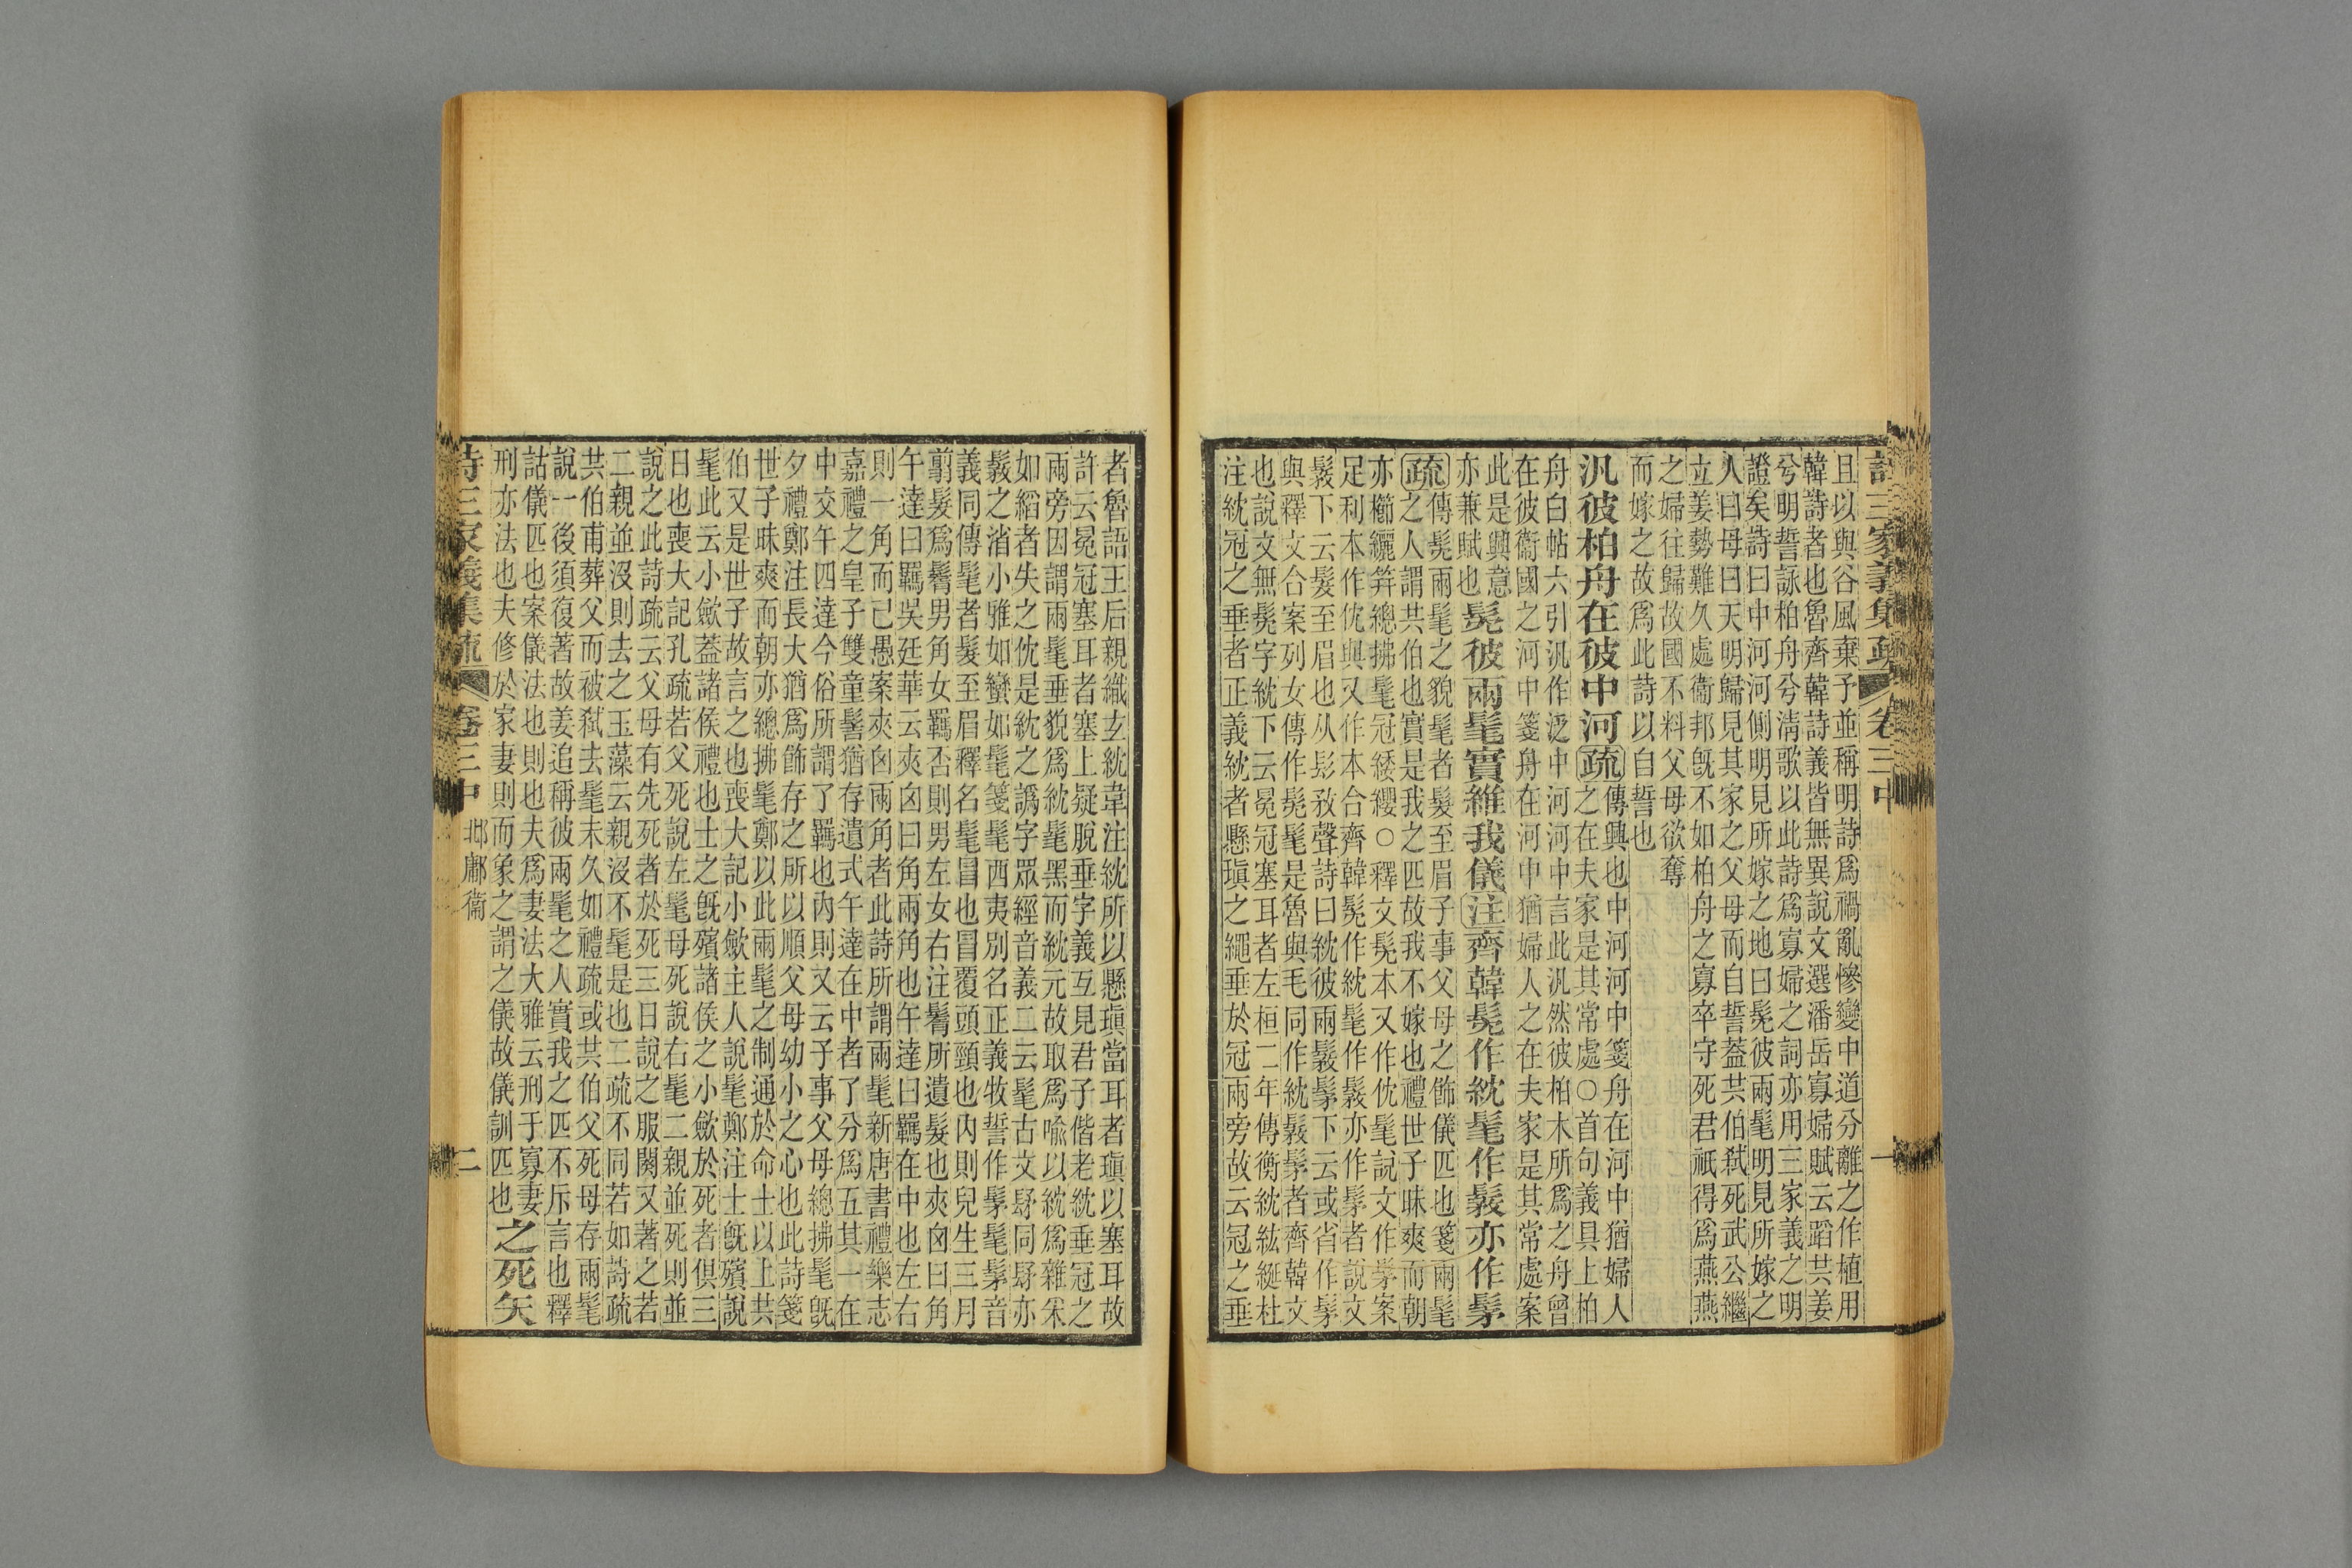 詩三家義集疏 卷三中 一
且以與谷風棄予並稱明詩爲禍亂慘變中道分離之作植用
韓詩者也魯齊韓詩義皆無異說文選潘岳寡婦賦云蹈共姜
兮明誓詠柏舟兮淸歌以此詩爲寡婦之詞亦用三家義之明
證矣詩曰中河河側明見所嫁之地曰髧彼兩髦明見所嫁之
人曰母曰天明歸見其家之父母而自誓蓋共伯弑死武公繼
立姜勢難久處衞邦旣不如柏舟之寡卒守死君祇得爲燕燕
之婦往歸故國不料父母欲奪
而嫁之故爲此詩以自誓也
汎彼柏舟在彼中河疏
傳興也中河河中箋舟在河中猶婦人
之在夫家是其常處○首句義具上柏
舟白帖六引汎作泛中河河中言此汎然彼柏木所爲之舟曾
在彼衞國之河中箋舟在河中猶婦人之在夫家是其常處案
此是興意
亦兼賦也
髧彼兩髦實維我儀注齊韓髧作紞髦作髳亦作髳
疏
傳髧兩髦之貌髦者髮至眉子事父母之飾儀匹也箋兩髦
之人謂共伯也實是我之匹故我不嫁也禮世子昧爽而朝
亦櫛纚笄總拂髦冠緌纓○釋文髧本又作㐽髦說文作髳案
足利本作㐽與又作本合齊韓髧作紞髦作髳亦作髳者說文
髳下云髮至眉也从髟敄聲詩曰紞彼兩髳髳下云或省作髳
與釋文合案列女傳作髧髦是魯與毛同作紞髳髳者齊韓文
也說文無髧字紞下云冕冠塞耳者左桓二年傳衡紞紘綖杜
注紞冠之垂者正義紞者懸瑱之繩垂於冠兩旁故云冠之垂
者魯語王后親織玄紞韋注紞所以懸瑱當耳者瑱以塞耳故
許云冕冠塞耳者塞上疑脫垂字義互見君子偕老紞垂冠之
兩旁因謂兩髦垂貌爲紞髦黑而紞元故取爲喩以紞爲雜采
如縚者失之㐽是紞之譌字眾經音義二云髦古文髳同髳亦
髳之消小雅如蠻如髦箋髦西夷別名正義牧誓作髳髦髳音
義同傳髦者髮至眉釋名髦冒也冒覆頭頸也內則兒生三月
翦髮爲鬌男角女羈否則男左女右注鬌所遺髮也夾囟曰角
午達曰羈吳廷華云夾囟曰角兩角也午達曰羈在中也左右
則一角而已愚案夾囟兩角者此詩所謂兩髦新唐書禮樂志
嘉禮之皇子雙童髻猶存遺式午達在中者了分爲五其一在
中交午四達今俗所謂了羈也內則又云子事父母總拂髦旣
夕禮鄭注長大猶爲飾存之所以順父母幼小之心也此詩箋
世子昧爽而朝亦總拂髦鄭以此兩髦之制通於命士以上共
伯又是世子故言之也喪大記小斂主人說髦鄭注士旣殯說
髦此云小斂蓋諸侯禮也士之旣殯諸侯之小斂於死者俱三
日也喪大記孔疏若父死說左髦母死說右髦二親並死則並
說之此詩疏云父母有先死者於死三日說之服闋又著之若
二親並沒則去之玉藻云親沒不髦是也二疏不同若如詩疏
共伯甫葬父而被弑去髦未久如禮疏或共伯父死母存兩髦
說一後須復著故姜追稱彼兩髦之人實我之匹不斥言也釋
詁儀匹也案儀法也則也夫爲妻法大雅云刑于寡妻之死矢
刑亦法也夫修於家妻則而象之謂之儀故儀訓匹也
詩三家義集疏 卷三中 邶鄘衞 二